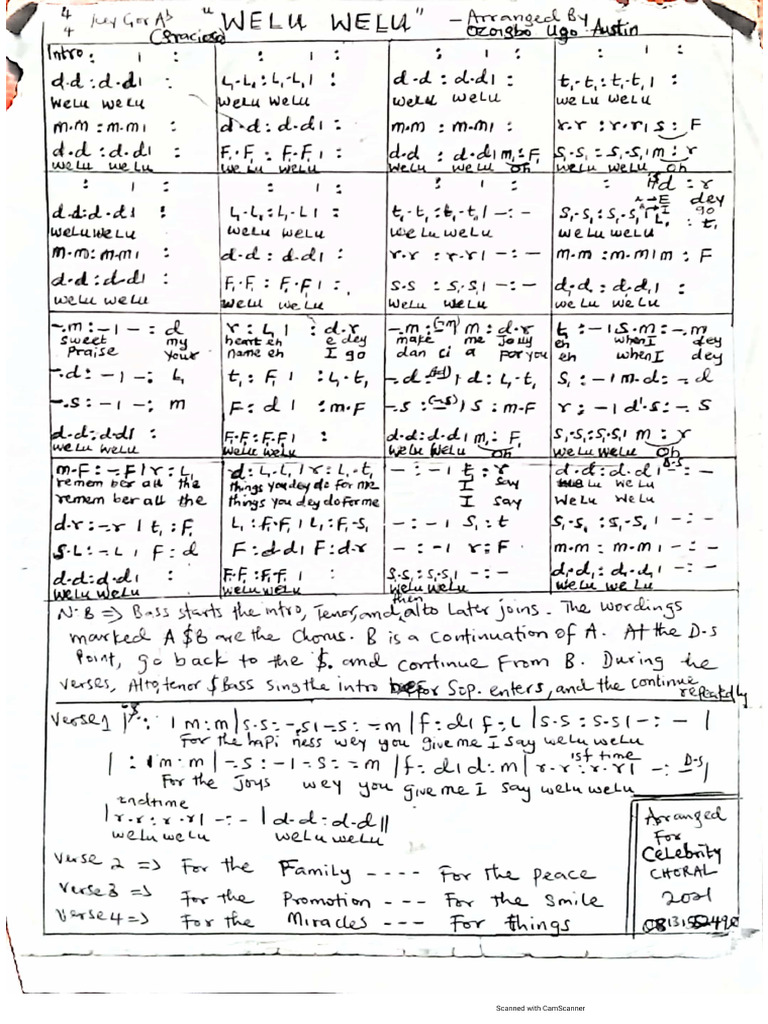 4/4 Key G or Ab "WELU WELU" - Arranged By
(Gracioso) Ozoigbo Ugo Austin
Intro: | : : | : : | : : | :
d.d:d.d| : L₁.L₁:L₁.L₁| : d.d:d.d| : t₁.t₁:t₁.t₁| :
WeLu WeLu WeLu WeLu WeLu WeLu WeLu WeLu
m.m:m.m| : d.d:d.d| : m.m:m.m| : r.r:r.r|s:F
d.d:d.d| : F₁.F₁:F₁.F₁| : d.d:d.d|m₁:F₁ S₁.S₁:S₁.S₁|m:r
WeLu WeLu WeLu WeLu WeLu WeLu Oh WeLu WeLu Oh
: | : : | : : | : : |d:r
A→E dey
I go
d.d:d.d| : L₁.L₁:L₁.L₁| : t₁.t₁:t₁.t₁|-:- S₁.S₁:S₁.S₁|L₁:t₁
WeLu WeLu WeLu WeLu WeLu WeLu WeLu WeLu
m.m:m.m| : d.d:d.d| : r.r:r.r|-:- m.m:m.m|m:F
d.d:d.d| : F₁.F₁:F₁.F₁| : S.S:S₁.S₁|-:- d₁.d₁:d.d₁| :
WeLu WeLu WeLu WeLu WeLu WeLu WeLu WeLu
-.m:-|-:d r:L₁| :d.r -.m:(-.m)|m:d.r t₁:-|S.m:-.m
sweet my heart eh e dey make me Jolly eh when I dey
Praise your name eh I go dan ci a for you eh when I dey
-.d:-|-:L₁ t₁:F₁| :L₁.t₁ -.d:(-.d)|d:L₁.t₁ S₁:-|m.d:-.d
-.s:-|-:m F:d| :m.F -.s:(-.s)|S:m.F r:-|d'.s:-.s
d.d:d.d| : F₁.F₁:F₁.F₁| : d.d:d.d|m₁:F₁ S₁.S₁:S₁.S₁|m:r
WeLu WeLu WeLu WeLu WeLu WeLu Oh WeLu WeLu Oh
m.F:-.F|r:L₁ d:L₁.L₁|r:L₁.t₁ -:-|t:r d.d:d.d|-:- D.S
remem ber all the things you dey do for me I say WeLu WeLu
remem ber all the things you dey do for me I say WeLu WeLu
d.r:-.r|t₁:F₁ L₁:F₁.F₁|L₁:F₁.S₁ -:-|S₁:t S₁.S₁:S₁.S₁|-:-
S.L:-.L|F:d F:d.d|F:d.r -:-|r:F m.m:m.m|-:-
d.d:d.d| : F₁.F₁:F₁.F₁| : S₁.S₁:S₁.S₁|-:- d₁.d₁:d₁.d₁|-:-
WeLu WeLu WeLu WeLu WeLu WeLu WeLu WeLu
then
N:B => Bass starts the intro, Tenor, and, alto Later joins. The wordings
marked A $ B are the Chorus. B is a continuation of A. At the D-S
Point, go back to the $. and continue From B. During the
verses, Alto, tenor $ Bass Sing the intro before Sop. enters, and the continue
repeatedly
Verse 1 |: :|m:m|S.S:-.S|-.S:-.m|f:d|f:L|S.S:S.S|-:-|
For the haPi ness wey you give me I say weLu weLu
|: :|m:m|-.S:-|-.S:-.m|f:d|d:m|r.r:r.r|-:-| 1st time D-S
For the Joys wey you give me I say weLu weLu
2nd time
|r.r:r.r|-:-|d.d:d.d||
weLu weLu weLu weLu
Verse 2 => For the Family ---- For the peace
Verse 3 => For the Promotion --- For the Smile
Verse 4 => For the Miracles --- For things
Arranged
For
Celebrity
CHORAL
2021
Scanned with CamScanner